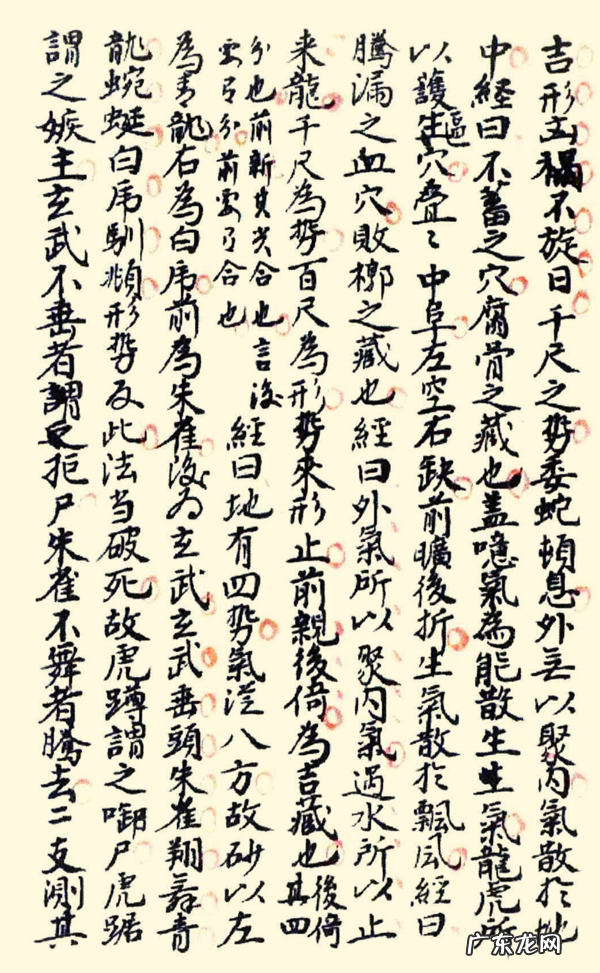 吉形吉禍不旋日千尺之勢委蛇頓息外无以聚内氣散扵地
中経曰不蓄之穴腐骨之藏也盖噫氣為能散生生氣龍虎所
以護生區穴叠〻中阜左空右缺前曠後折生氣散扵飄风經曰
騰漏之血穴敗槨之藏也經曰外氣所以聚内氣過水所以止
来龍千尺為勢百尺為形勢來形止前親後倚為吉藏也後倚其四
分也前新其炎合也言後
要弓分前要弓合也
經曰地有四勢氣從八方故砂以左
為青龍右為白虎前為朱雀後為玄武玄武垂頭朱雀翔舞青
龍蜿蜒白虎馴頫形勢反此法当破死故虎蹲謂之啣尸虎踞
謂之嫉主玄武不垂者謂之拒尸朱雀不舞者騰去二支測其
广东龙网